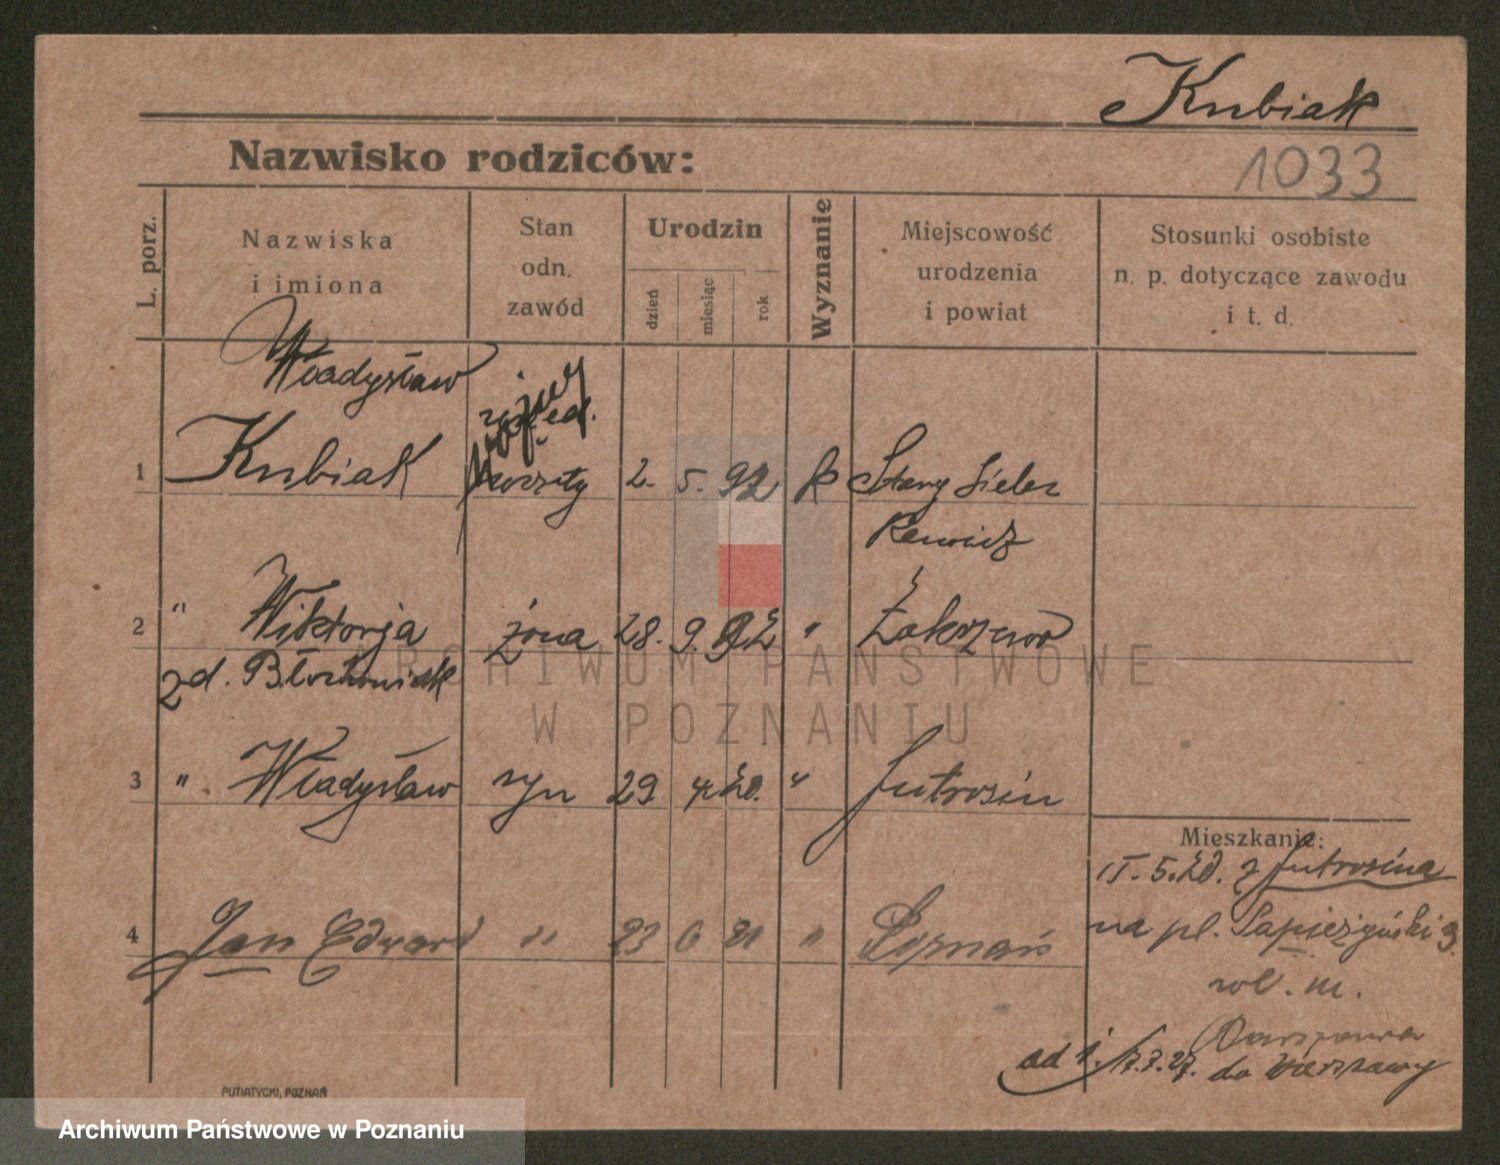 Kubiak
Nazwisko rodziców:
1033
L. porz.
Nazwiska
i imiona
Stan
odn.
zawód
Urodzin
dzień
miesiąc
rok
Wyznanie
Miejscowość
urodzenia
i powiat
Stosunki osobiste
n. p. dotyczące zawodu
i t. d.
Władysław
1 Kubiak poczty 2. 5. 92 k Stary Sielec
Rawicz
2 " Wiktorja żona 28. 9. 92 " Zakrzewo
zd. Błochowiak
3 " Władysław syn 29 4 20. " Jutrosin
Mieszkanie:
15. 5. 20. z Jutrosina
4 Jan Edward " 23 6 21 " Poznań
na pl. Sapieżyński 9.
wł. m.
Warszawa
od 1. 17.7.27. do Warszawy
PUTIATYCKI, POZNAŃ
ARCHIWUM PAŃSTWOWE
W POZNANIU
Archiwum Państwowe w Poznaniu